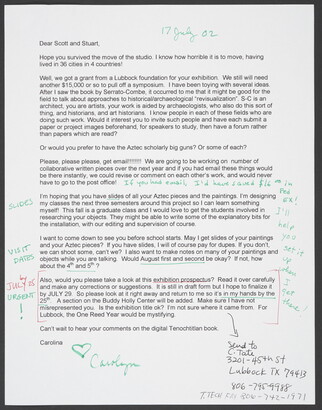 17 July 02
Dear Scott and Stuart,
Hope you survived the move of the studio. I know how horrible it is to move, having
lived in 36 cities in 4 countries!
Well, we got a grant from a Lubbock foundation for your exhibition. We still will need
another $15,000 or so to pull off a symposium. I have been toying with several ideas.
After I saw the book by Serrato-Combe, it occurred to me that it might be good for the
field to talk about approaches to historical/archaeological "revisualization". S-C is an
architect, you are artists, your work is aided by archaeologists, who also do this sort of
thing, and historians, and art historians. I know people in each of these fields who are
doing such work. Would it interest you to invite such people and have each submit a
paper or project images beforehand, for speakers to study, then have a forum rather
than papers which are read?
Or would you prefer to have the Aztec scholarly big guns? Or some of each?
Please, please please, get email!!!!!!!! We are going to be working on number of
collaborative written pieces over the next year and if you had email these things would
be there instantly, we could revise or comment on each other's work, and would never
have to go to the post office! If you had email, I'd have saved $16
in the ex!
I'll help you set it up when I get there!
SLIDES
I'm hoping that you have slides of all your Aztec pieces and the paintings. I'm designing
my classes the next three semesters around this project so I can learn something
myself! This fall is graduate class and I would love to get the students involved in
researching your objects. They might be able to write some of the explanatory bits for the
installation, with our editing and supervision of course.
VISIT DATES
I want to come down to see you before school starts. May I get slides of your paintings
and your Aztec pieces? If you have slides, I will of course pay for dupes. If you don't,
we can shoot some, can't we? I also want to make notes on many of your paintings and
objects while you are talking. Would August first and second be okay? If not, how
about the 4th and 5th?
by JULY 25 URGENT!
Also, would you please take a look at this exhibition prospectus? Read it over carefully
and make any corrections or suggestions. It is still in draft form but I hope to finalize it
by JULY 29. So please look at it right away and return to me so it's in my hands by the
25th. A section on the Buddy Holly Center will be added. Make sure I have not
misrepresented you. Is the exhibition title ok? I'm not sure where it came from. For
Lubbock, the One Reed Year would be mystifying.
Can't wait to hear your comments on the digital Tenochtitlan book.
Carolina
Carolyn
Send to
C. Tate
3201-45th St
Lubbock TX 79413
806-795-9988
T. TECH 806-742-1971